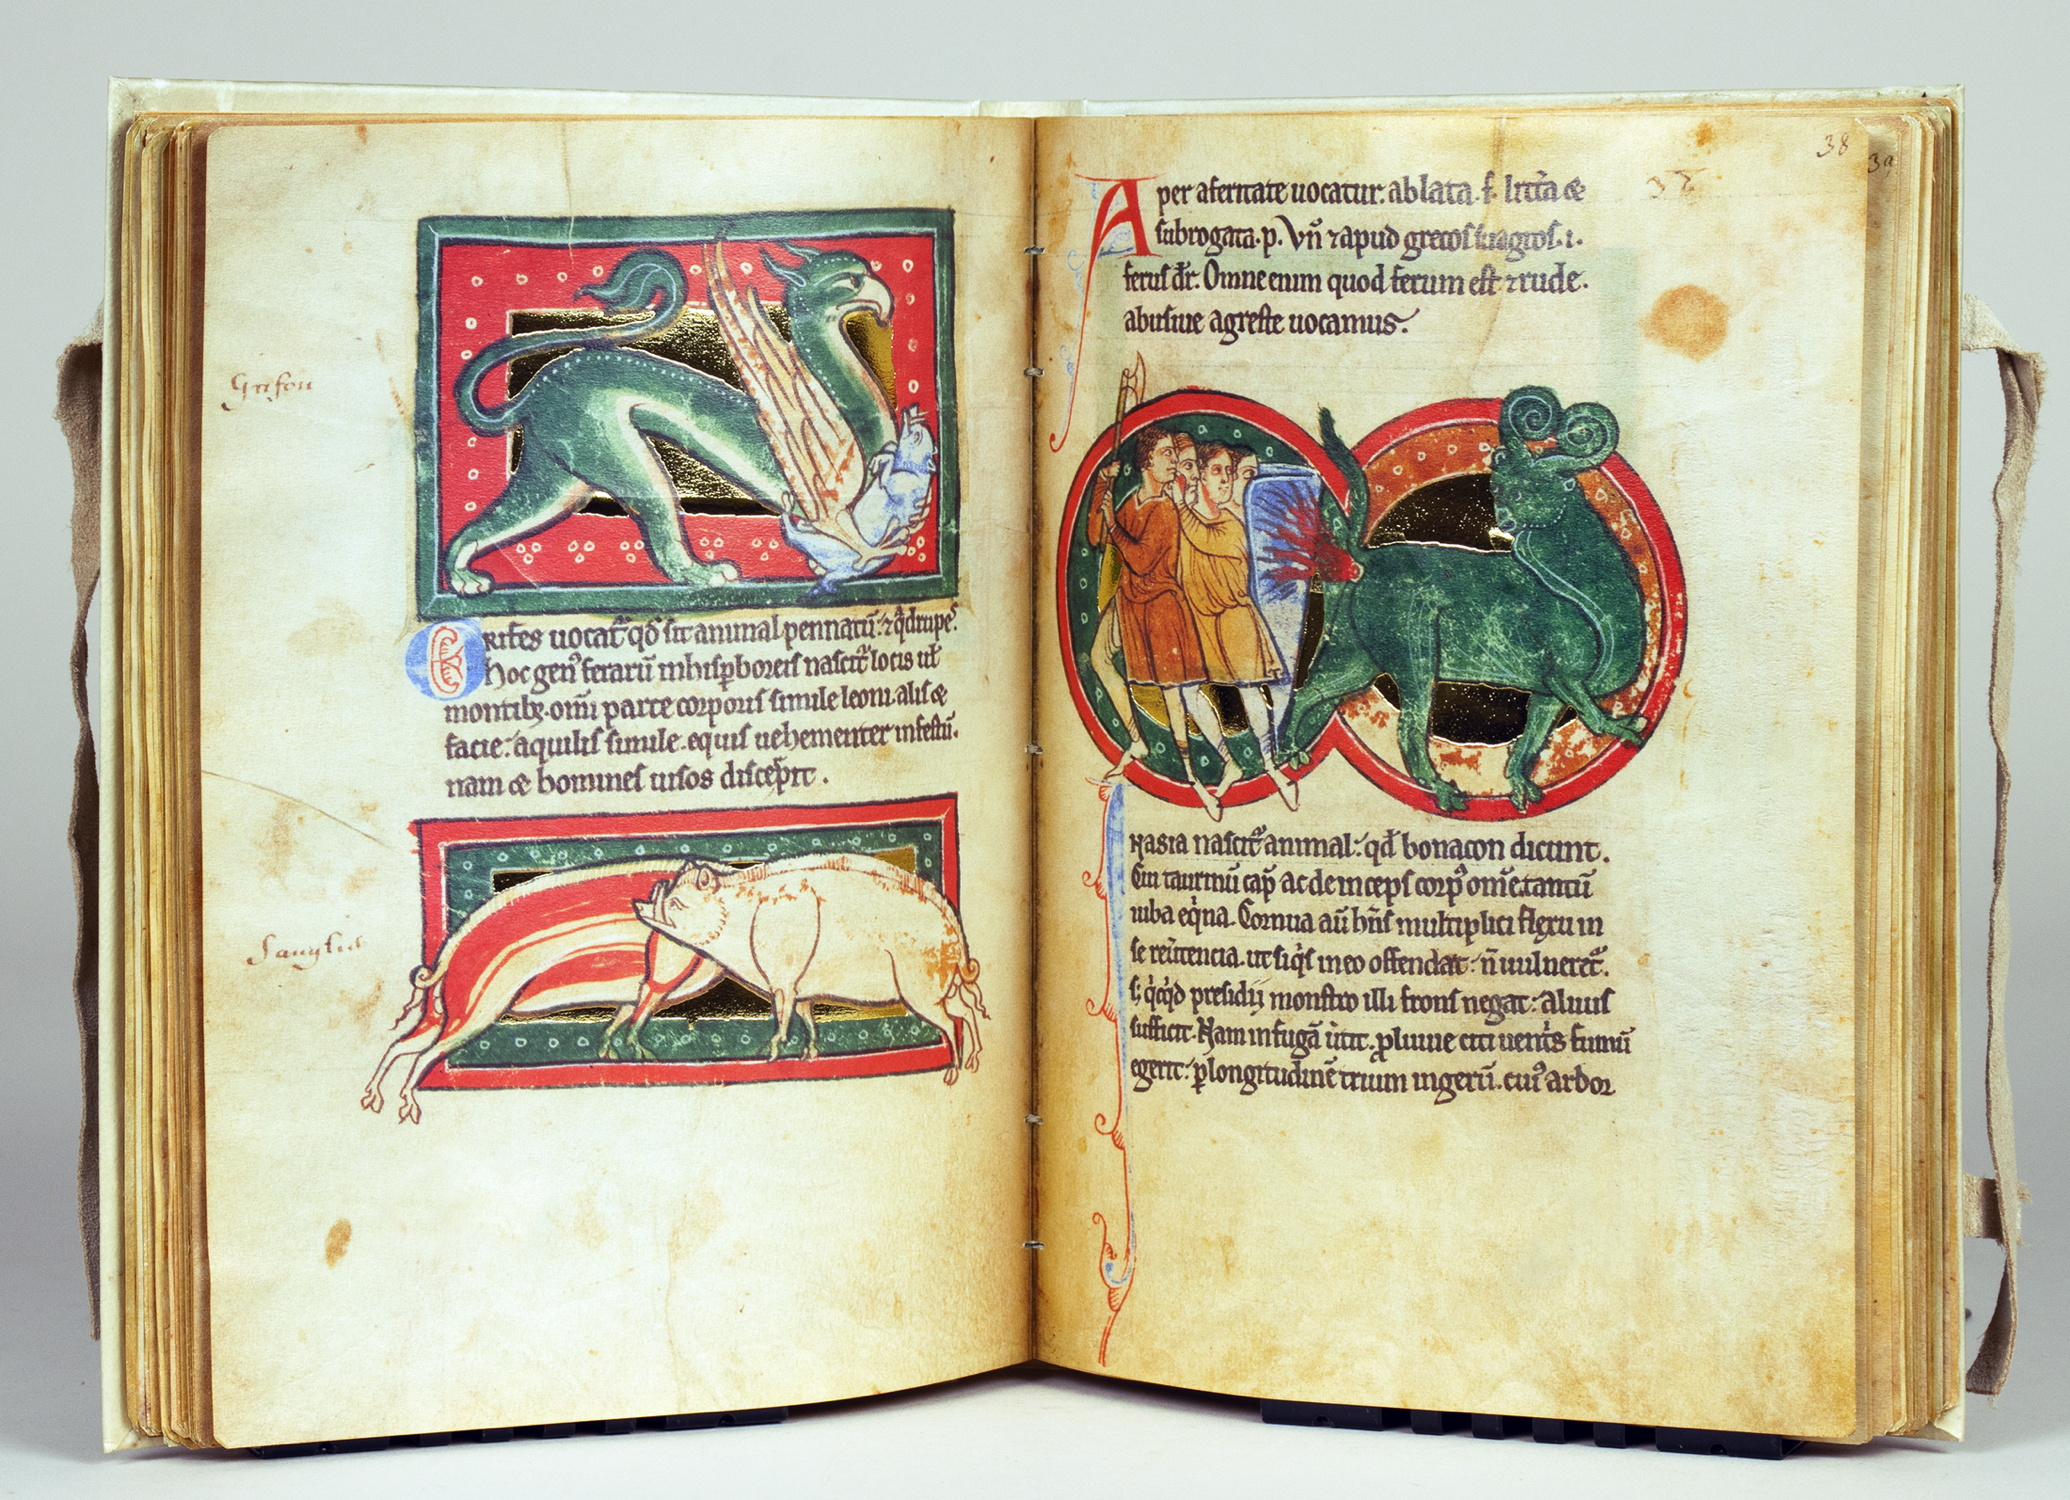 Grifon
Grifes uocat᷑ qđ sit animal pennatū: ⁊ q̇drupes.
hoc gen⁹ ferarū in hisꝑboreis nascit᷑ locis uł
montibꝫ. om̄i parte corporis simile leoni. alis ⁊
facie: aquilis simile. equis uehementer infestū.
nam ⁊ homines uisos discerpit.
Sanglier
38
39
Aper a feritate uocatur: ablata. f. litt̄a ⁊
subrogata. p. Vn̄ ⁊ apud grecos suagros. i.
ferus dr̄. Omne enim quod ferum est ⁊ rude.
abusiue agreste uocamus.
N asia nascit᷑ animal: qđ bonacon dicunt.
Cui taurinū cap̄ ac deinceps corp⁹ om̄e. tantū
iuba eq̇na. Cornua aū hn̄s multiplici flexu in
se reūtencia. ut siq̇s in eo offendat: n̄ uulneret᷑.
S; q̇cq̇d presidij monstro illi frons negat: aluus
sufficit. Nam in fugā ūtit᷑. ꝓluuie citi uent̄s fumū
egerit: ꝑ longitudinē trium iugerū. cui⁹ arbor